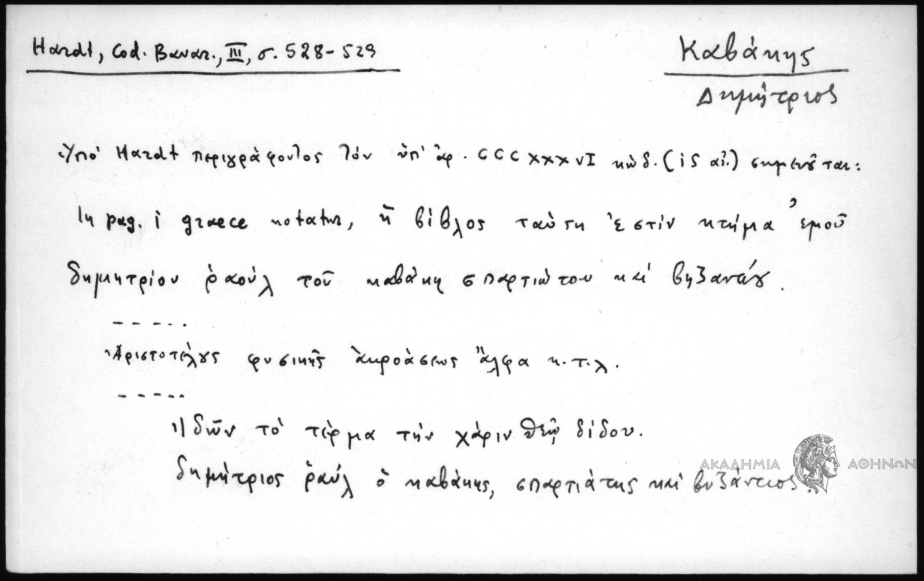 Hardt, Cod. Bavar., III, σ. 528-529
Καβάκης
Δημήτριος
Ὑπό Hardt περιγράφοντος τόν ὑπ' ἀρ. CCCXXXVI κώδ. (ις αἰ.) σημειοῦται:
In pag. i graece notatur, ἡ βίβλος ταύτη ἐστίν κτῆμα ἐμοῦ
δημητρίου ῥαούλ τοῦ καβάκη σπαρτιώτου καί
-----
Ἀριστοτέλους φυσικῆς ἀκροάσεως ἄλφα κ.τ.λ.
-----
Ἰδὼν τό τέρμα τήν χάριν θεῷ δίδου.
δημήτριος ῥαύλ ὁ καβάκης, σπαρτιάτης καί βυζάντιος.
ΑΚΑΔΗΜΙΑ ΑΘΗΝΩΝ